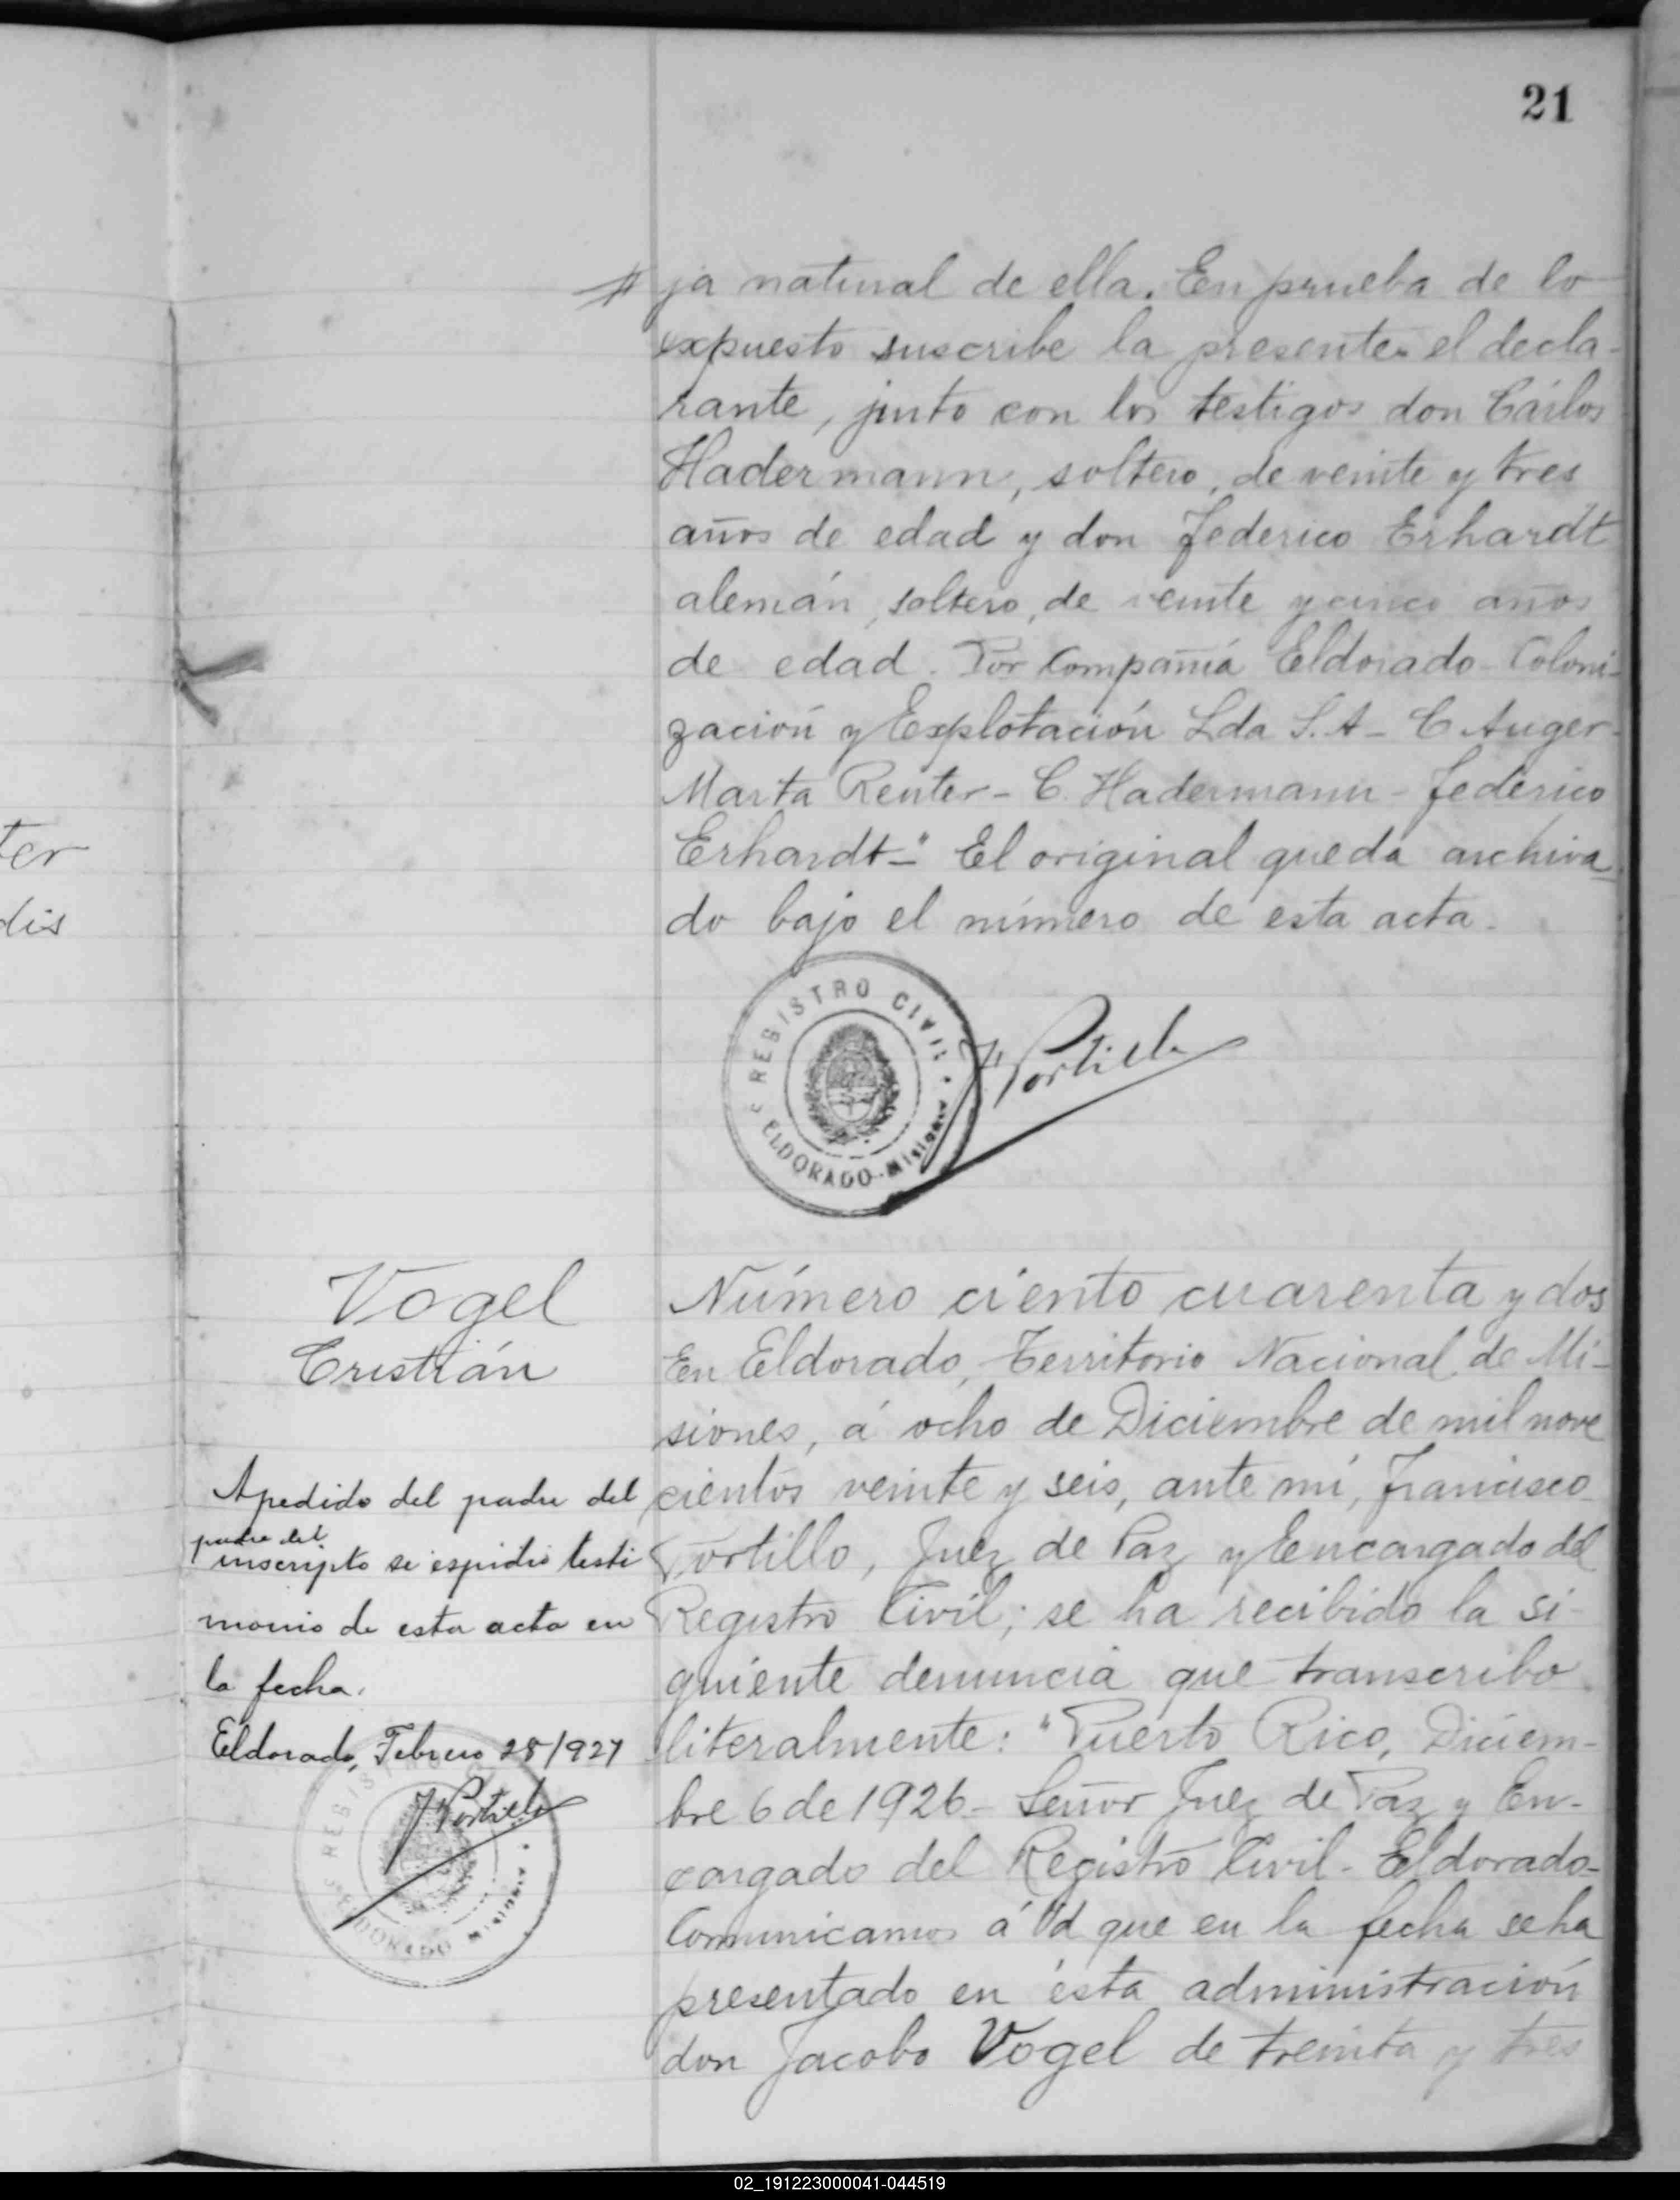 21
# ja natural de ella. En prueba de lo
expuesto suscribe la presente el decla-
rante, junto con los testigos don Cárlos
Hadermann, soltero, de veinte y tres
años de edad y don Federico Erhardt
alemán, soltero, de veinte y cinco años
de edad. Por Compañía Eldorado Coloni-
zación y Explotación Lda S. A - C Auger -
Marta Reuter - C. Hadermann - Federico
Erhardt -" El original queda archiva-
do bajo el número de esta acta.
REGISTRO CIVIL
ELDORADO - Misiones
F Portillo
ter
dis
Vogel
Cristián
Apedido del padre del
padre del
inscripto se espidio testi
monio de esta acta en
la fecha.
Eldorado, Febrero 28/927
F Portillo
REGISTRO
ELDORADO Misiones
Número ciento cuarenta y dos
En Eldorado, Territorio Nacional de Mi-
siones, á ocho de Diciembre de mil nove
cientos veinte y seis, ante mí, Francisco
Portillo, Juez de Paz y Encargado del
Registro Civil; se ha recibido la si-
guiente denuncia que transcribo
literalmente: "Puerto Rico, Diciem-
bre 6 de 1926 - Señor Juez de Paz y En-
cargado del Registro Civil - Eldorado -
Comunicamos á Vd que en la fecha se ha
presentado en ésta administración
don Jacobo Vogel de treinta y tres
02_191223000041-044519